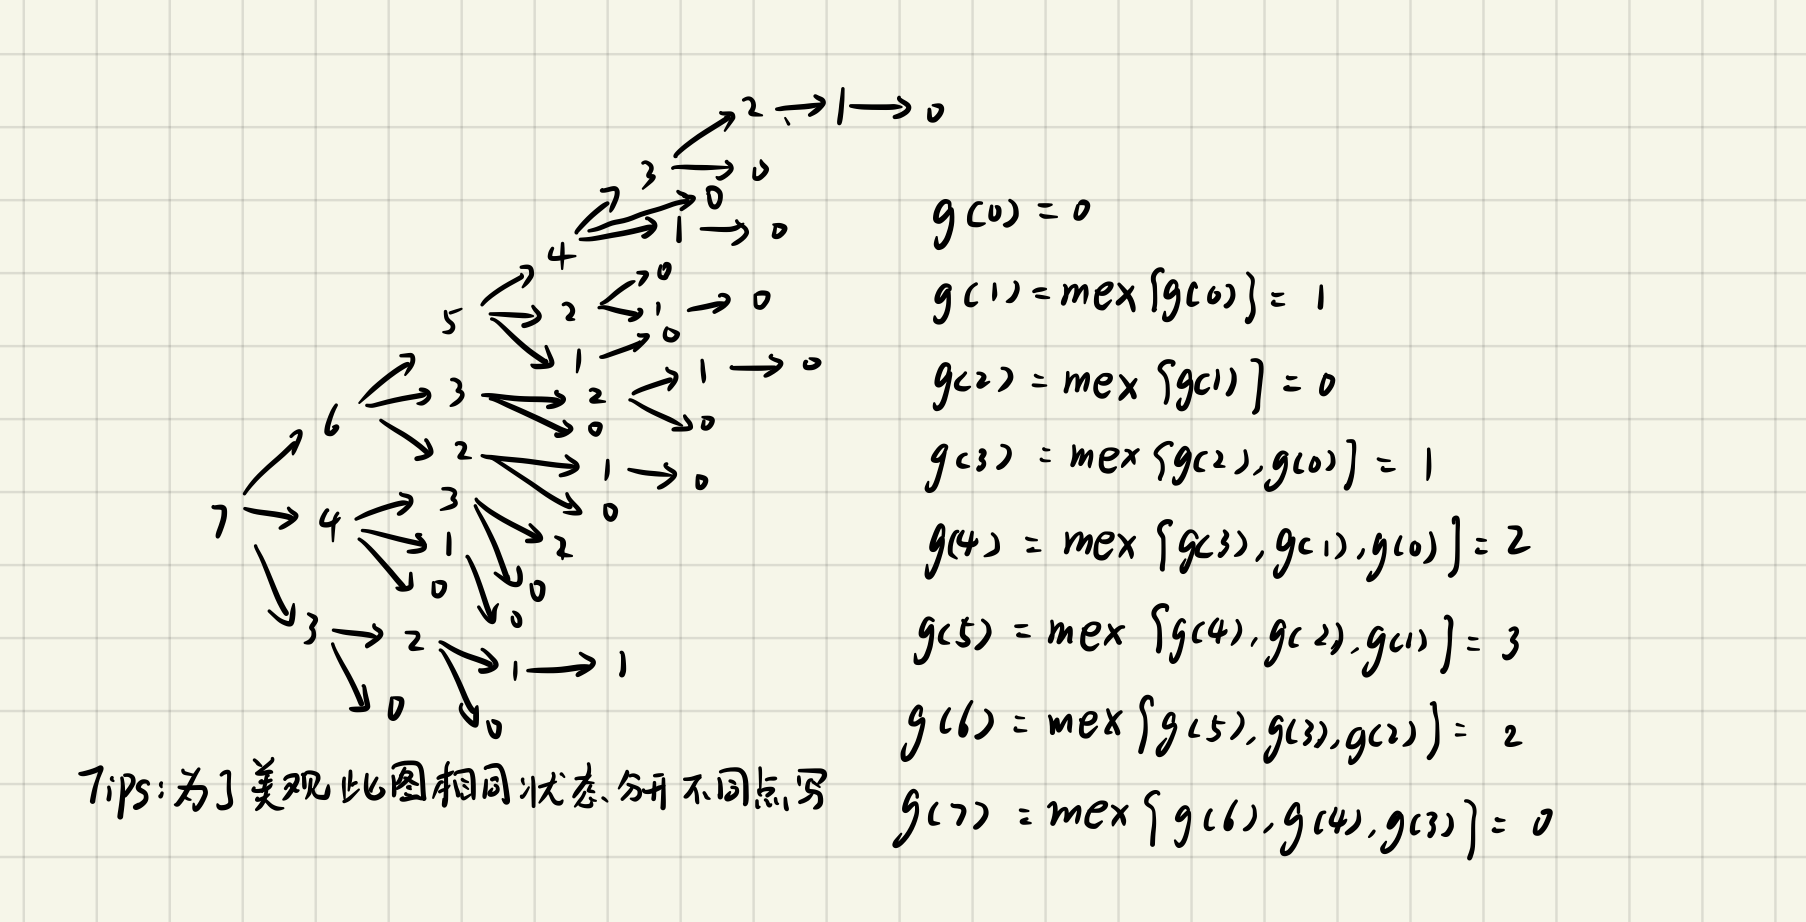 2 → 1 → 0
3 → 0
0
4 1 → 0
0
5 2 1 → 0
1 → 0
6 3 → 2 1 → 0
0 0
2 → 1 → 0
7 → 4 3 0
1 2
0 0
0
3 → 2 1 → 1
0 0
Tips:为了美观此图相同状态分开不同点写
g(0) = 0
g(1) = mex{g(0)} = 1
g(2) = mex{g(1)} = 0
g(3) = mex{g(2),g(0)} = 1
g(4) = mex{g(3),g(1),g(0)} = 2
g(5) = mex{g(4),g(2),g(1)} = 3
g(6) = mex{g(5),g(3),g(2)} = 2
g(7) = mex{g(6),g(4),g(3)} = 0